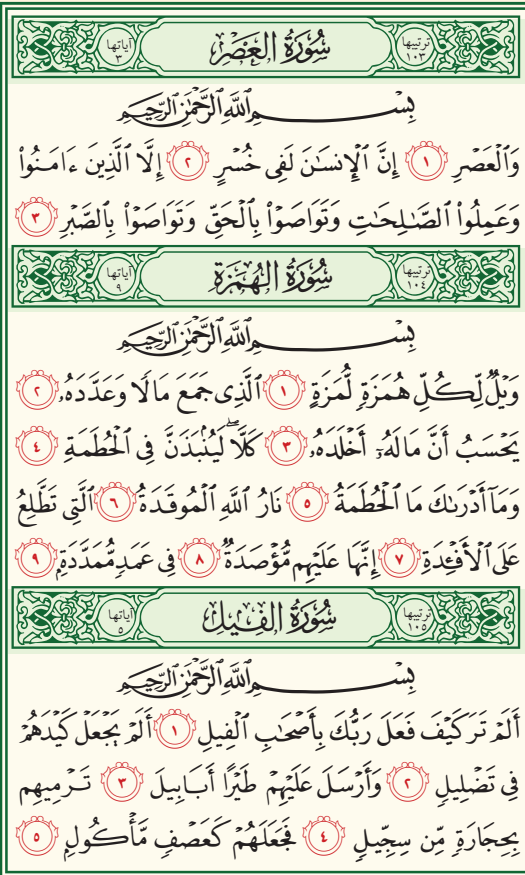 ترتيبها ١٠٣ سُورَةُ العَصْرِ آياتها ٣
بِسْمِ ٱللَّهِ ٱلرَّحْمَٰنِ ٱلرَّحِيمِ
وَٱلْعَصْرِ ١ إِنَّ ٱلْإِنسَـٰنَ لَفِى خُسْرٍ ٢ إِلَّا ٱلَّذِينَ ءَامَنُوا۟
وَعَمِلُوا۟ ٱلصَّـٰلِحَـٰتِ وَتَوَاصَوْا۟ بِٱلْحَقِّ وَتَوَاصَوْا۟ بِٱلصَّبْرِ ٣
ترتيبها ١٠٤ سُورَةُ الهُمَزَةِ آياتها ٩
بِسْمِ ٱللَّهِ ٱلرَّحْمَٰنِ ٱلرَّحِيمِ
وَيْلٌ لِّكُلِّ هُمَزَةٍ لُّمَزَةٍ ١ ٱلَّذِى جَمَعَ مَالًا وَعَدَّدَهُۥ ٢
يَحْسَبُ أَنَّ مَالَهُۥٓ أَخْلَدَهُۥ ٣ كَلَّا ۖ لَيُنۢبَذَنَّ فِى ٱلْحُطَمَةِ ٤
وَمَآ أَدْرَىٰكَ مَا ٱلْحُطَمَةُ ٥ نَارُ ٱللَّهِ ٱلْمُوقَدَةُ ٦ ٱلَّتِى تَطَّلِعُ
عَلَى ٱلْأَفْـِٔدَةِ ٧ إِنَّهَا عَلَيْهِم مُّؤْصَدَةٌ ٨ فِى عَمَدٍ مُّمَدَّدَةٍۭ ٩
ترتيبها ١٠٥ سُورَةُ الفِيلِ آياتها ٥
بِسْمِ ٱللَّهِ ٱلرَّحْمَٰنِ ٱلرَّحِيمِ
أَلَمْ تَرَ كَيْفَ فَعَلَ رَبُّكَ بِأَصْحَـٰبِ ٱلْفِيلِ ١ أَلَمْ يَجْعَلْ كَيْدَهُمْ
فِى تَضْلِيلٍ ٢ وَأَرْسَلَ عَلَيْهِمْ طَيْرًا أَبَابِيلَ ٣ تَرْمِيهِم
بِحِجَارَةٍ مِّن سِجِّيلٍ ٤ فَجَعَلَهُمْ كَعَصْفٍ مَّأْكُولٍۭ ٥